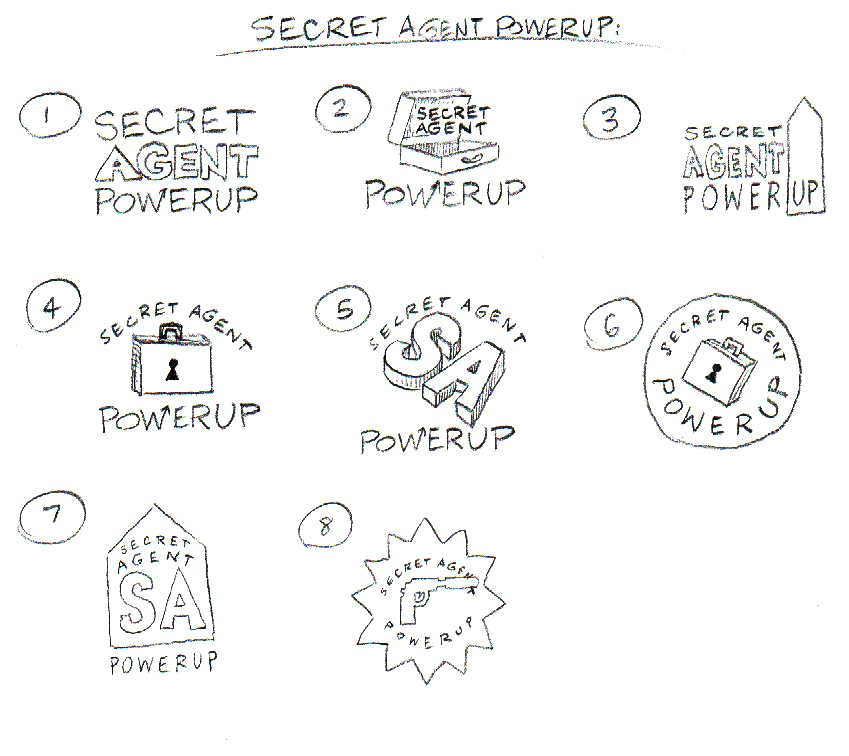 SECRET AGENT POWERUP:
1
SECRET
AGENT
POWERUP
2
SECRET
AGENT
POWERUP
3
SECRET
AGENT
POWERUP
4
SECRET AGENT
POWERUP
5
SECRET AGENT
SA
POWERUP
6
SECRET AGENT
POWERUP
7
SECRET
AGENT
SA
POWERUP
8
SECRET AGENT
POWERUP